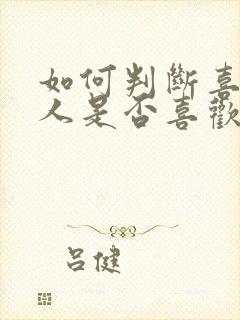 如何判斷喜
人是否喜歡
吕健